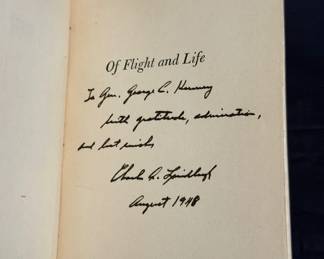 Of Flight and Life
To Gen. George C. Kenney
with gratitude, admiration,
and best wishes
Charles A. Lindbergh
August 1948